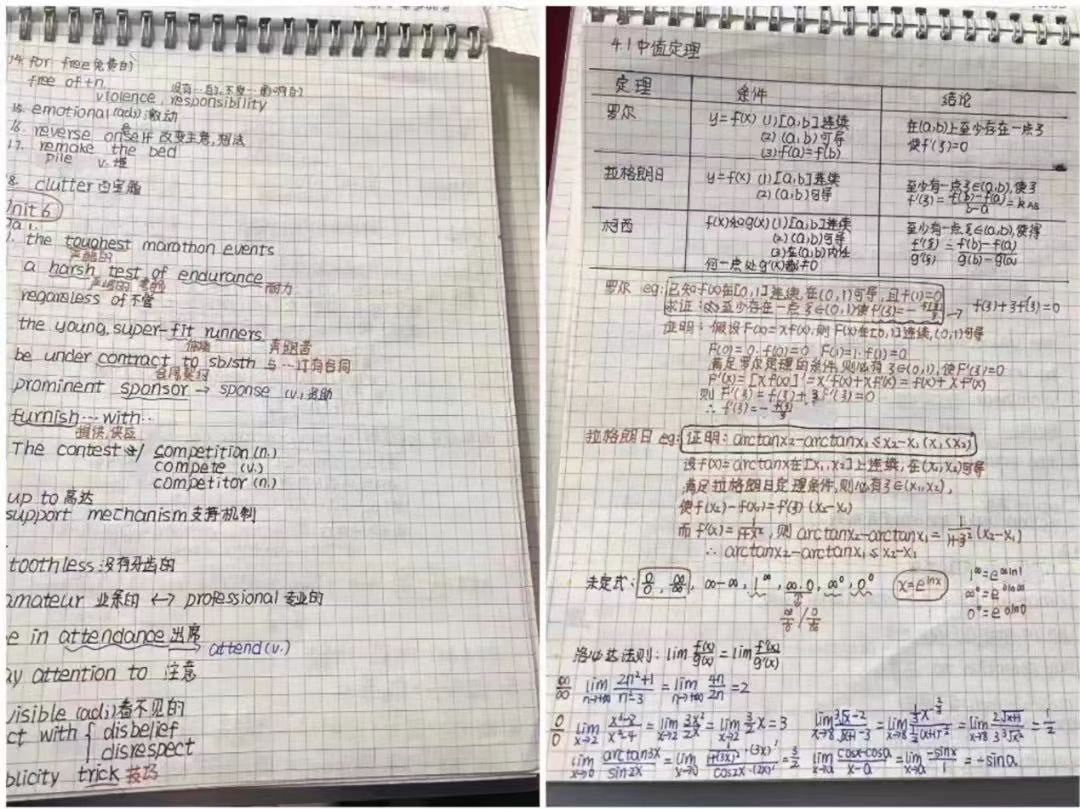 14. for free 免费的
free of + n.
没有…的,不受…影响的
violence, responsibility
15. emotional (adj.) 激动
16. reverse oneself 改变主意,想法
17. remake the bed
pile v. 堆
8. clutter
Unit 6
1. the toughest marathon events
严酷的
a harsh test of endurance 耐力
严峻的 考验
regardless of 不管
the young, super-fit runners
be under contract to sb/sth 与…订有合同
合同契约
prominent sponsor → sponse (v.) 资助
furnish … with…
提供,供应
The contest competition (n.)
compete (v.)
competitor (n.)
up to 高达
support mechanism 支持机制
toothless 没有牙齿的
amateur 业余的 ↔ professional 专业的
e in attendance 出席
attend (v.)
ay attention to 注意
visible (adj.) 看不见的
ct with { disbelief
disrespect
blicity trick 技巧
4.1 中值定理
定理 条件 结论
罗尔 y=f(x) (1) [a,b] 连续
(2) (a,b) 可导
(3) f(a)=f(b)
在(a,b)上至少存在一点ξ
使f'(ξ)=0
拉格朗日 y=f(x) (1) [a,b] 连续
(2) (a,b) 可导
至少有一点ξ∈(a,b),使
f'(ξ)=f(b)-f(a)/b-a=kAB
柯西 f(x)和g(x) (1) [a,b] 连续
(2) (a,b) 可导
(3) 在(a,b)内任
何一点处g'(x)都≠0
至少有一点ξ∈(a,b),使得
f'(ξ)/g'(ξ)=f(b)-f(a)/g(b)-g(a)
罗尔 eg: 已知f(x)在[0,1]连续,在(0,1)可导,且f(1)=0
求证:至少存在一点ξ∈(0,1)使f'(ξ)=-f(ξ)/ξ → f(ξ)+ξf'(ξ)=0
证明:假设F(x)=xf(x),则F(x)在[0,1]连续,(0,1)可导
F(0)=0·f(0)=0 F(1)=1·f(1)=0
满足罗尔定理的条件,则必有ξ∈(0,1),使F'(ξ)=0
F'(x)=[xf(x)]'=x'f(x)+xf'(x)=f(x)+xf'(x)
则F'(ξ)=f(ξ)+ξf'(ξ)=0
∴ f'(ξ)=-f(ξ)/ξ
拉格朗日 eg: 证明:arctanx₂-arctanx₁≤x₂-x₁ (x₁<x₂)
设f(x)=arctanx在[x₁,x₂]上连续,在(x₁,x₂)可导
满足拉格朗日定理条件,则必有ξ∈(x₁,x₂),
使f(x₂)-f(x₁)=f'(ξ)(x₂-x₁)
而f'(x)=1/1+x²,则arctanx₂-arctanx₁=1/1+ξ²(x₂-x₁)
∴ arctanx₂-arctanx₁≤x₂-x₁
未定式: 0/0, ∞/∞, ∞-∞, 1^∞, ∞·0, ∞⁰, 0⁰ x=e^lnx
1^∞=e^∞ln1
∞⁰=e^0ln∞
0⁰=e^0ln0
洛必达法则: lim f(x)/g(x)=lim f'(x)/g'(x)
∞/∞ lim n→+∞ 2n²+1/n²-3=lim n→+∞ 4n/2n=2
0/0 lim x→2 x³-8/x²-4=lim x→2 3x²/2x=lim x→2 3/2 x=3
lim x→8 =1/2
lim x→0 arctan3x/sin2x=lim x→0 =3/2
lim x→a cosx-cosa/x-a=lim x→a -sinx/1=-sina